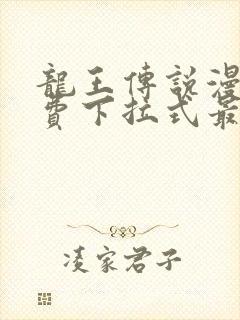 龍王傳說漫
費下拉式最
凌家君子